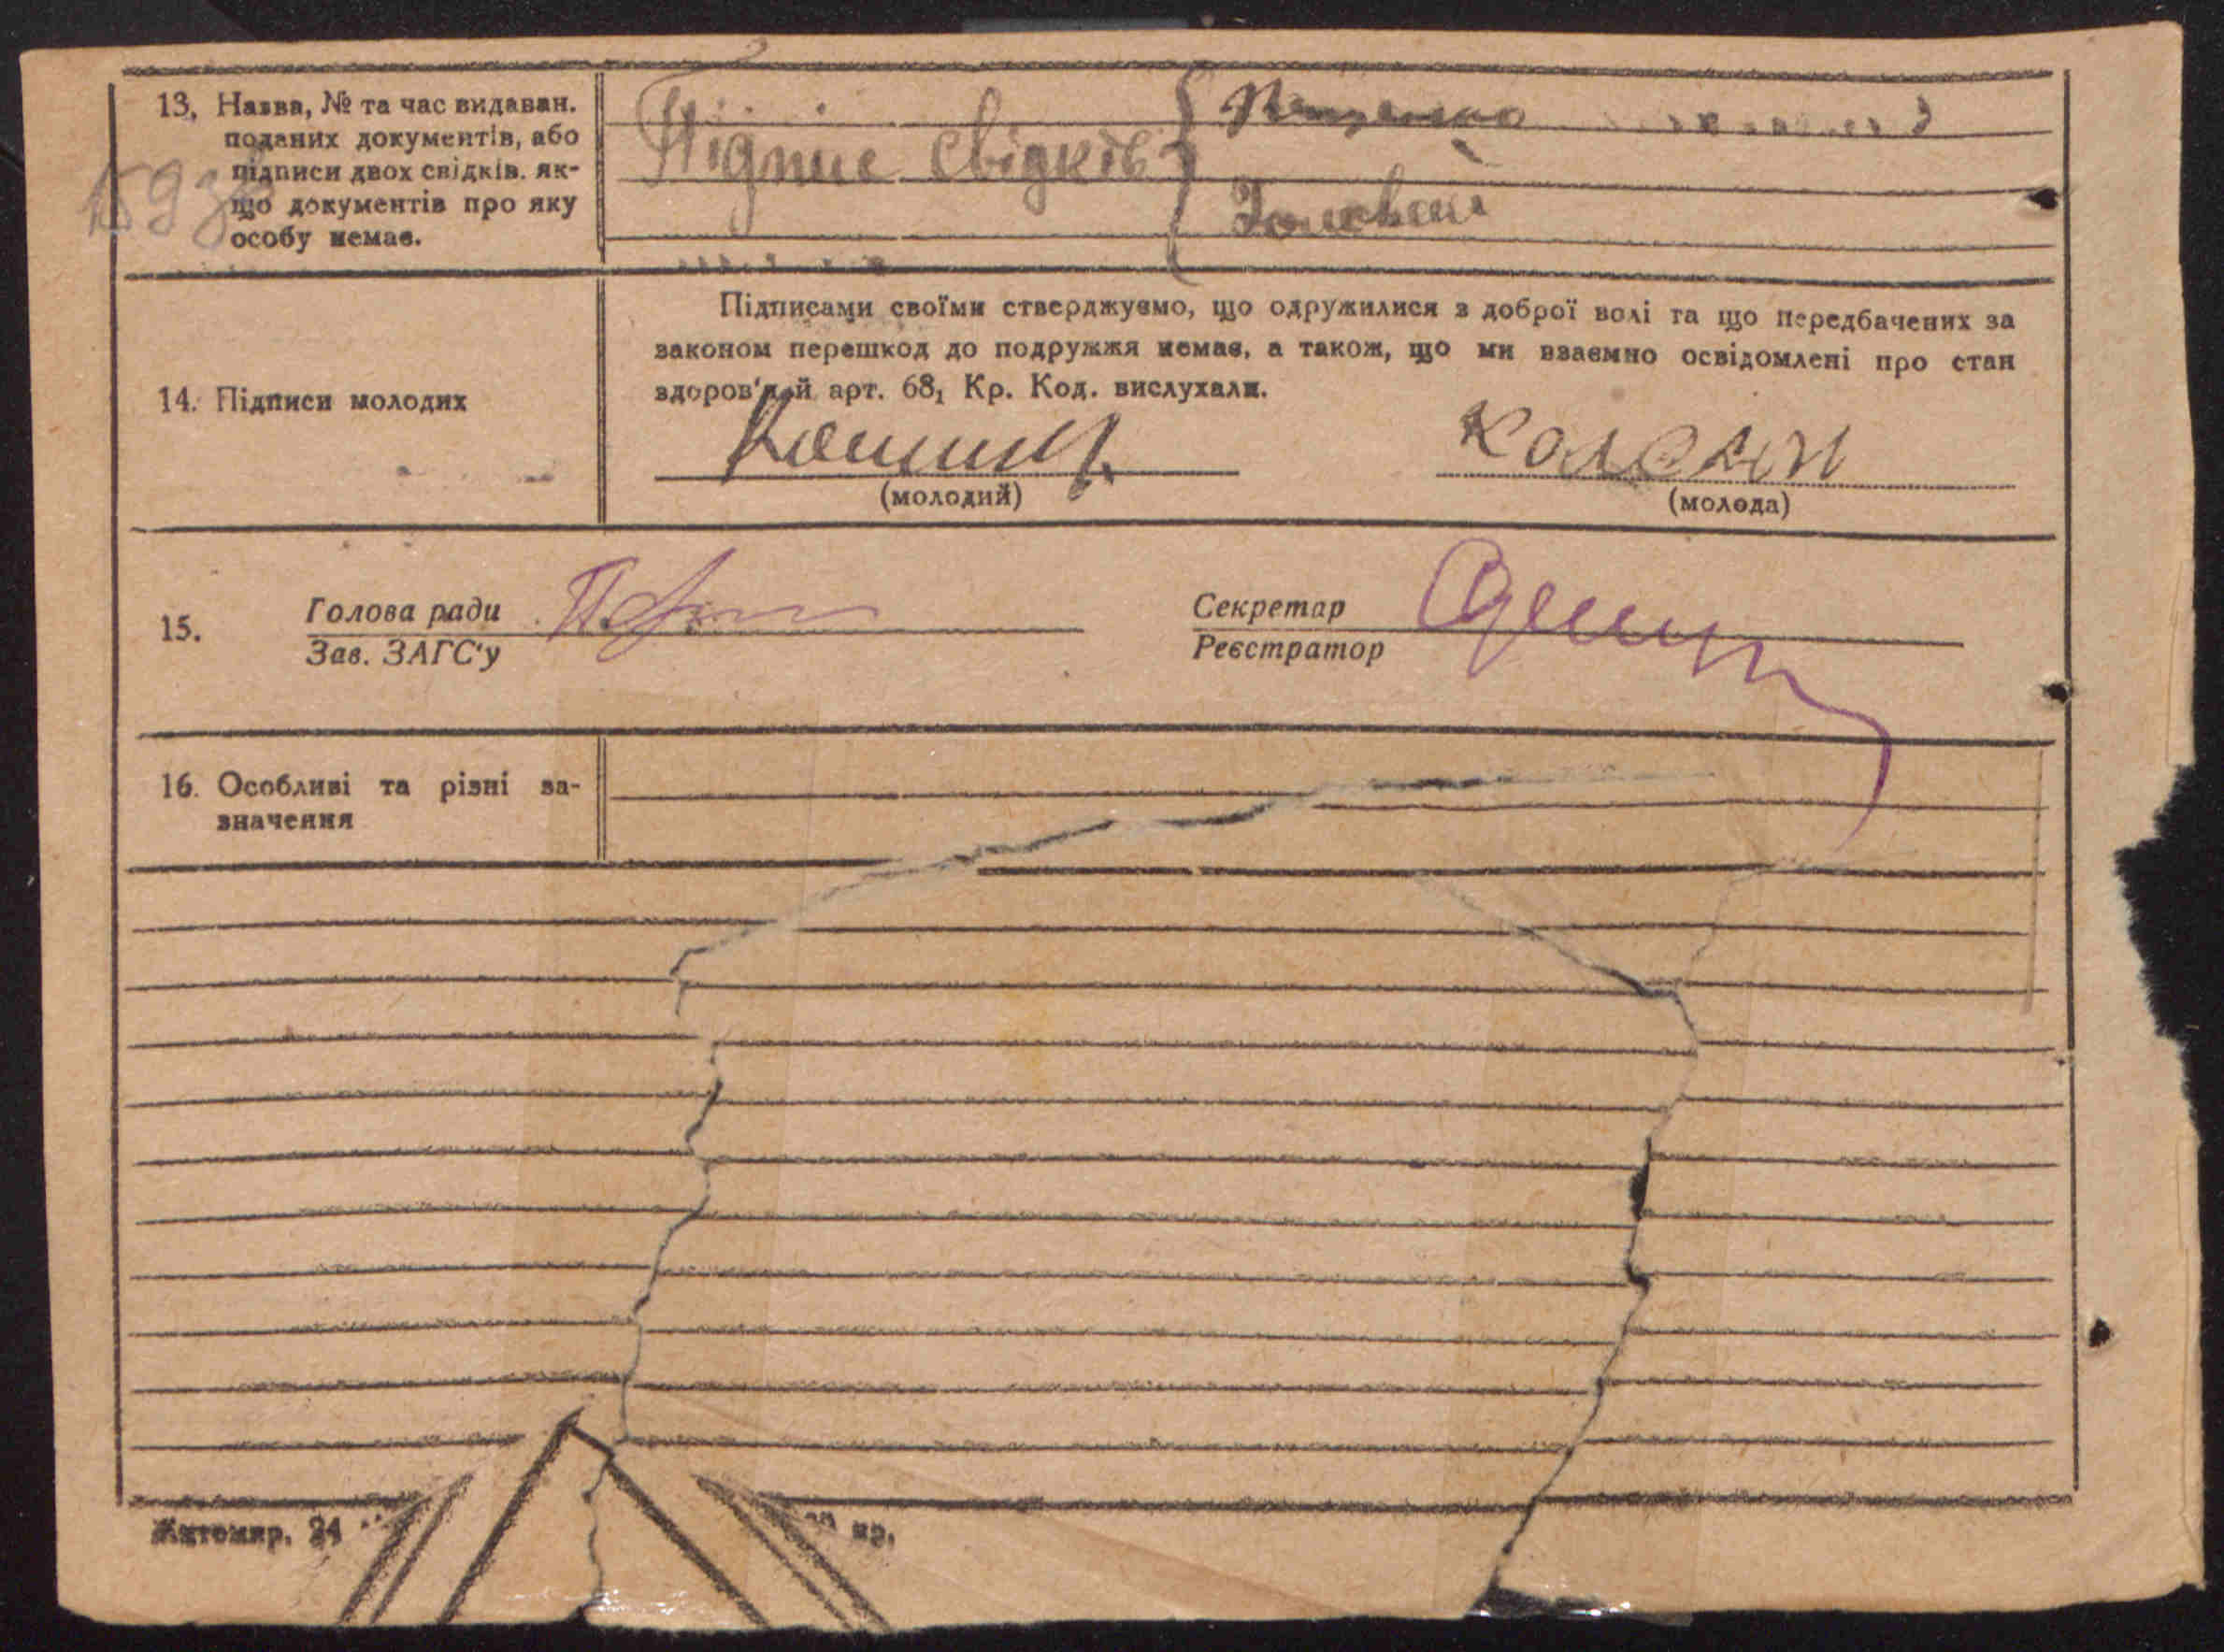 13. Назва, № та час видаван.
поданих документів, або
підписи двох свідків. як-
що документів про яку
особу немає.
Підпис свідків
14. Підписи молодих
Підписами своїми стверджуємо, що одружилися з доброї волі та що передбачених за
законом перешкод до подружжя немає, а також, що ми взаємно освідомлені про стан
здоров'я й арт. 68, Кр. Код. вислухали.
(молодий)
(молода)
15.
Голова ради
Зав. ЗАГС'у
Секретар
Реєстратор
16. Особливі та різні за-
значення
Житомир. 24